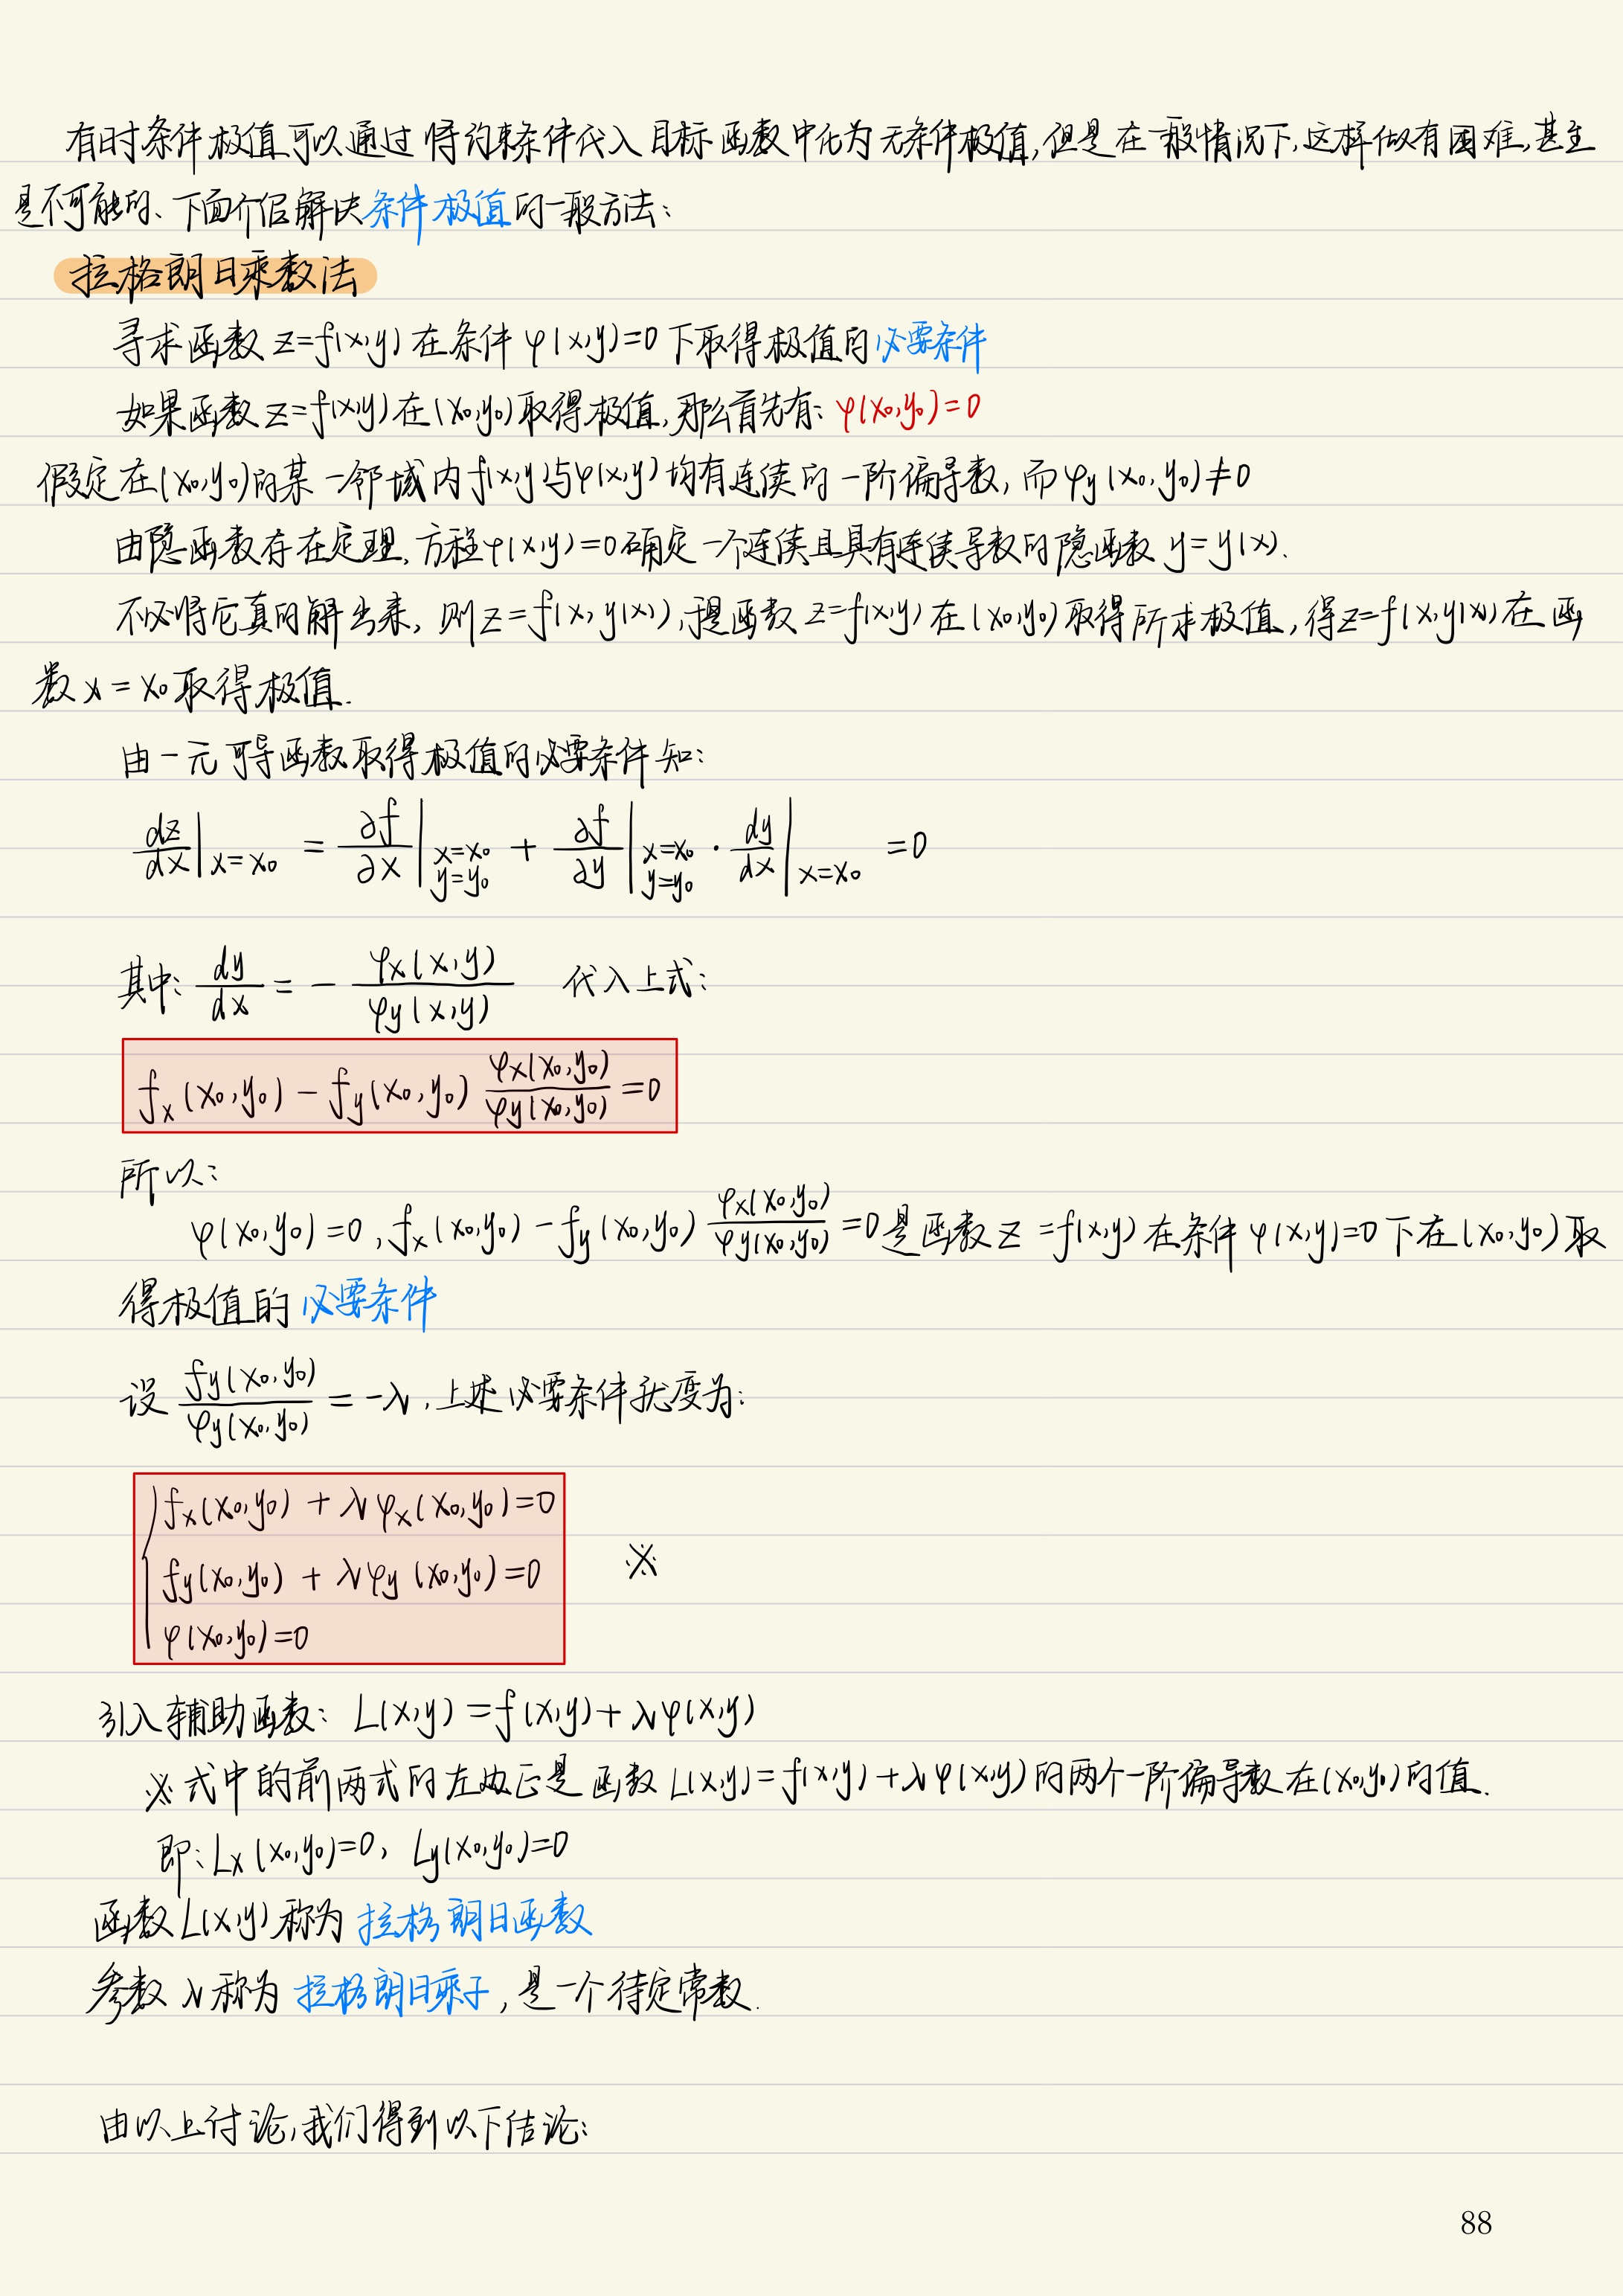 有时条件极值可以通过将约束条件代入目标函数中化为无条件极值,但是在一般情况下,这样做有困难,甚至
是不可能的、下面介绍解决条件极值的一般方法:
拉格朗日乘数法
寻求函数 z=f(x,y) 在条件 φ(x,y)=0 下取得极值的必要条件
如果函数 z=f(x,y) 在 (x₀,y₀) 取得极值,那么首先有: φ(x₀,y₀)=0
假定在(x₀,y₀)的某一邻域内f(x,y与φ(x,y)均有连续的一阶偏导数,而φy(x₀,y₀)≠0
由隐函数存在定理,方程φ(x,y)=0确定一个连续且具有连续导数的隐函数 y=y(x).
不必将它真的解出来, 则z=f(x,y(x)),于是函数 z=f(x,y) 在 (x₀,y₀)取得所求极值,得z=f(x,y(x)在函
数x=x₀取得极值.
由一元可导函数取得极值的必要条件知:
dz/dx|x=x₀ = ∂f/∂x|x=x₀ y=y₀ + ∂f/∂y|x=x₀ y=y₀ · dy/dx|x=x₀ =0
其中: dy/dx = - φx(x,y)/φy(x,y) 代入上式:
fx(x₀,y₀) - fy(x₀,y₀) φx(x₀,y₀)/φy(x₀,y₀) =0
所以:
φ(x₀,y₀)=0,fx(x₀,y₀)-fy(x₀,y₀) φx(x₀,y₀)/φy(x₀,y₀) =0是函数z=f(x,y)在条件φ(x,y)=0下在(x₀,y₀)取
得极值的必要条件
设 fy(x₀,y₀)/φy(x₀,y₀) = -λ,上述必要条件就变为:
fx(x₀,y₀) + λφx(x₀,y₀)=0
fy(x₀,y₀) + λφy(x₀,y₀)=0 ※
φ(x₀,y₀)=0
引入辅助函数: L(x,y)=f(x,y)+λφ(x,y)
※式中的前两式的左边正是函数L(x,y)=f(x,y)+λφ(x,y)的两个一阶偏导数在(x₀,y₀)的值.
即: Lx(x₀,y₀)=0, Ly(x₀,y₀)=0
函数L(x,y)称为拉格朗日函数
参数λ称为拉格朗日乘子,是一个待定常数.
由以上讨论,我们得到以下结论:
88